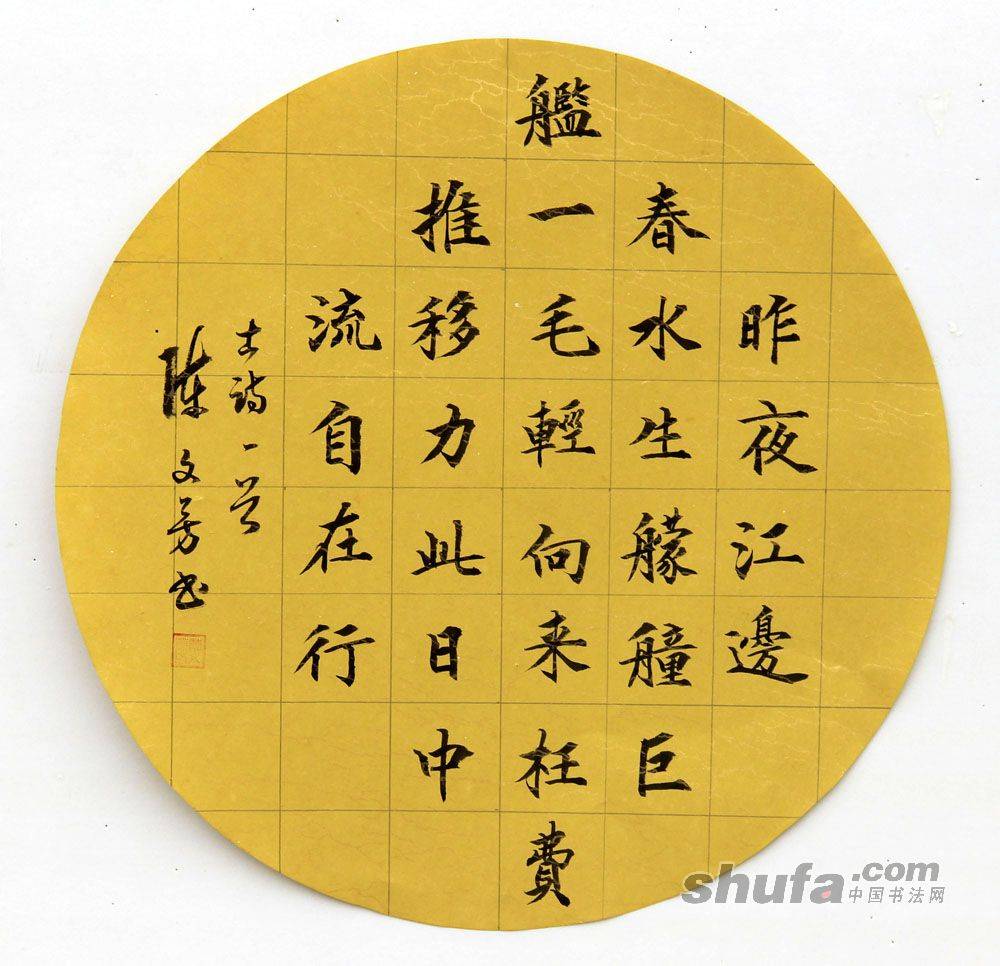 昨夜江邊
春水生艨艟巨
艦一毛輕向来枉費
推移力此日中
流自在行
古诗一首
陈文芳书
shufa.com
中国书法网